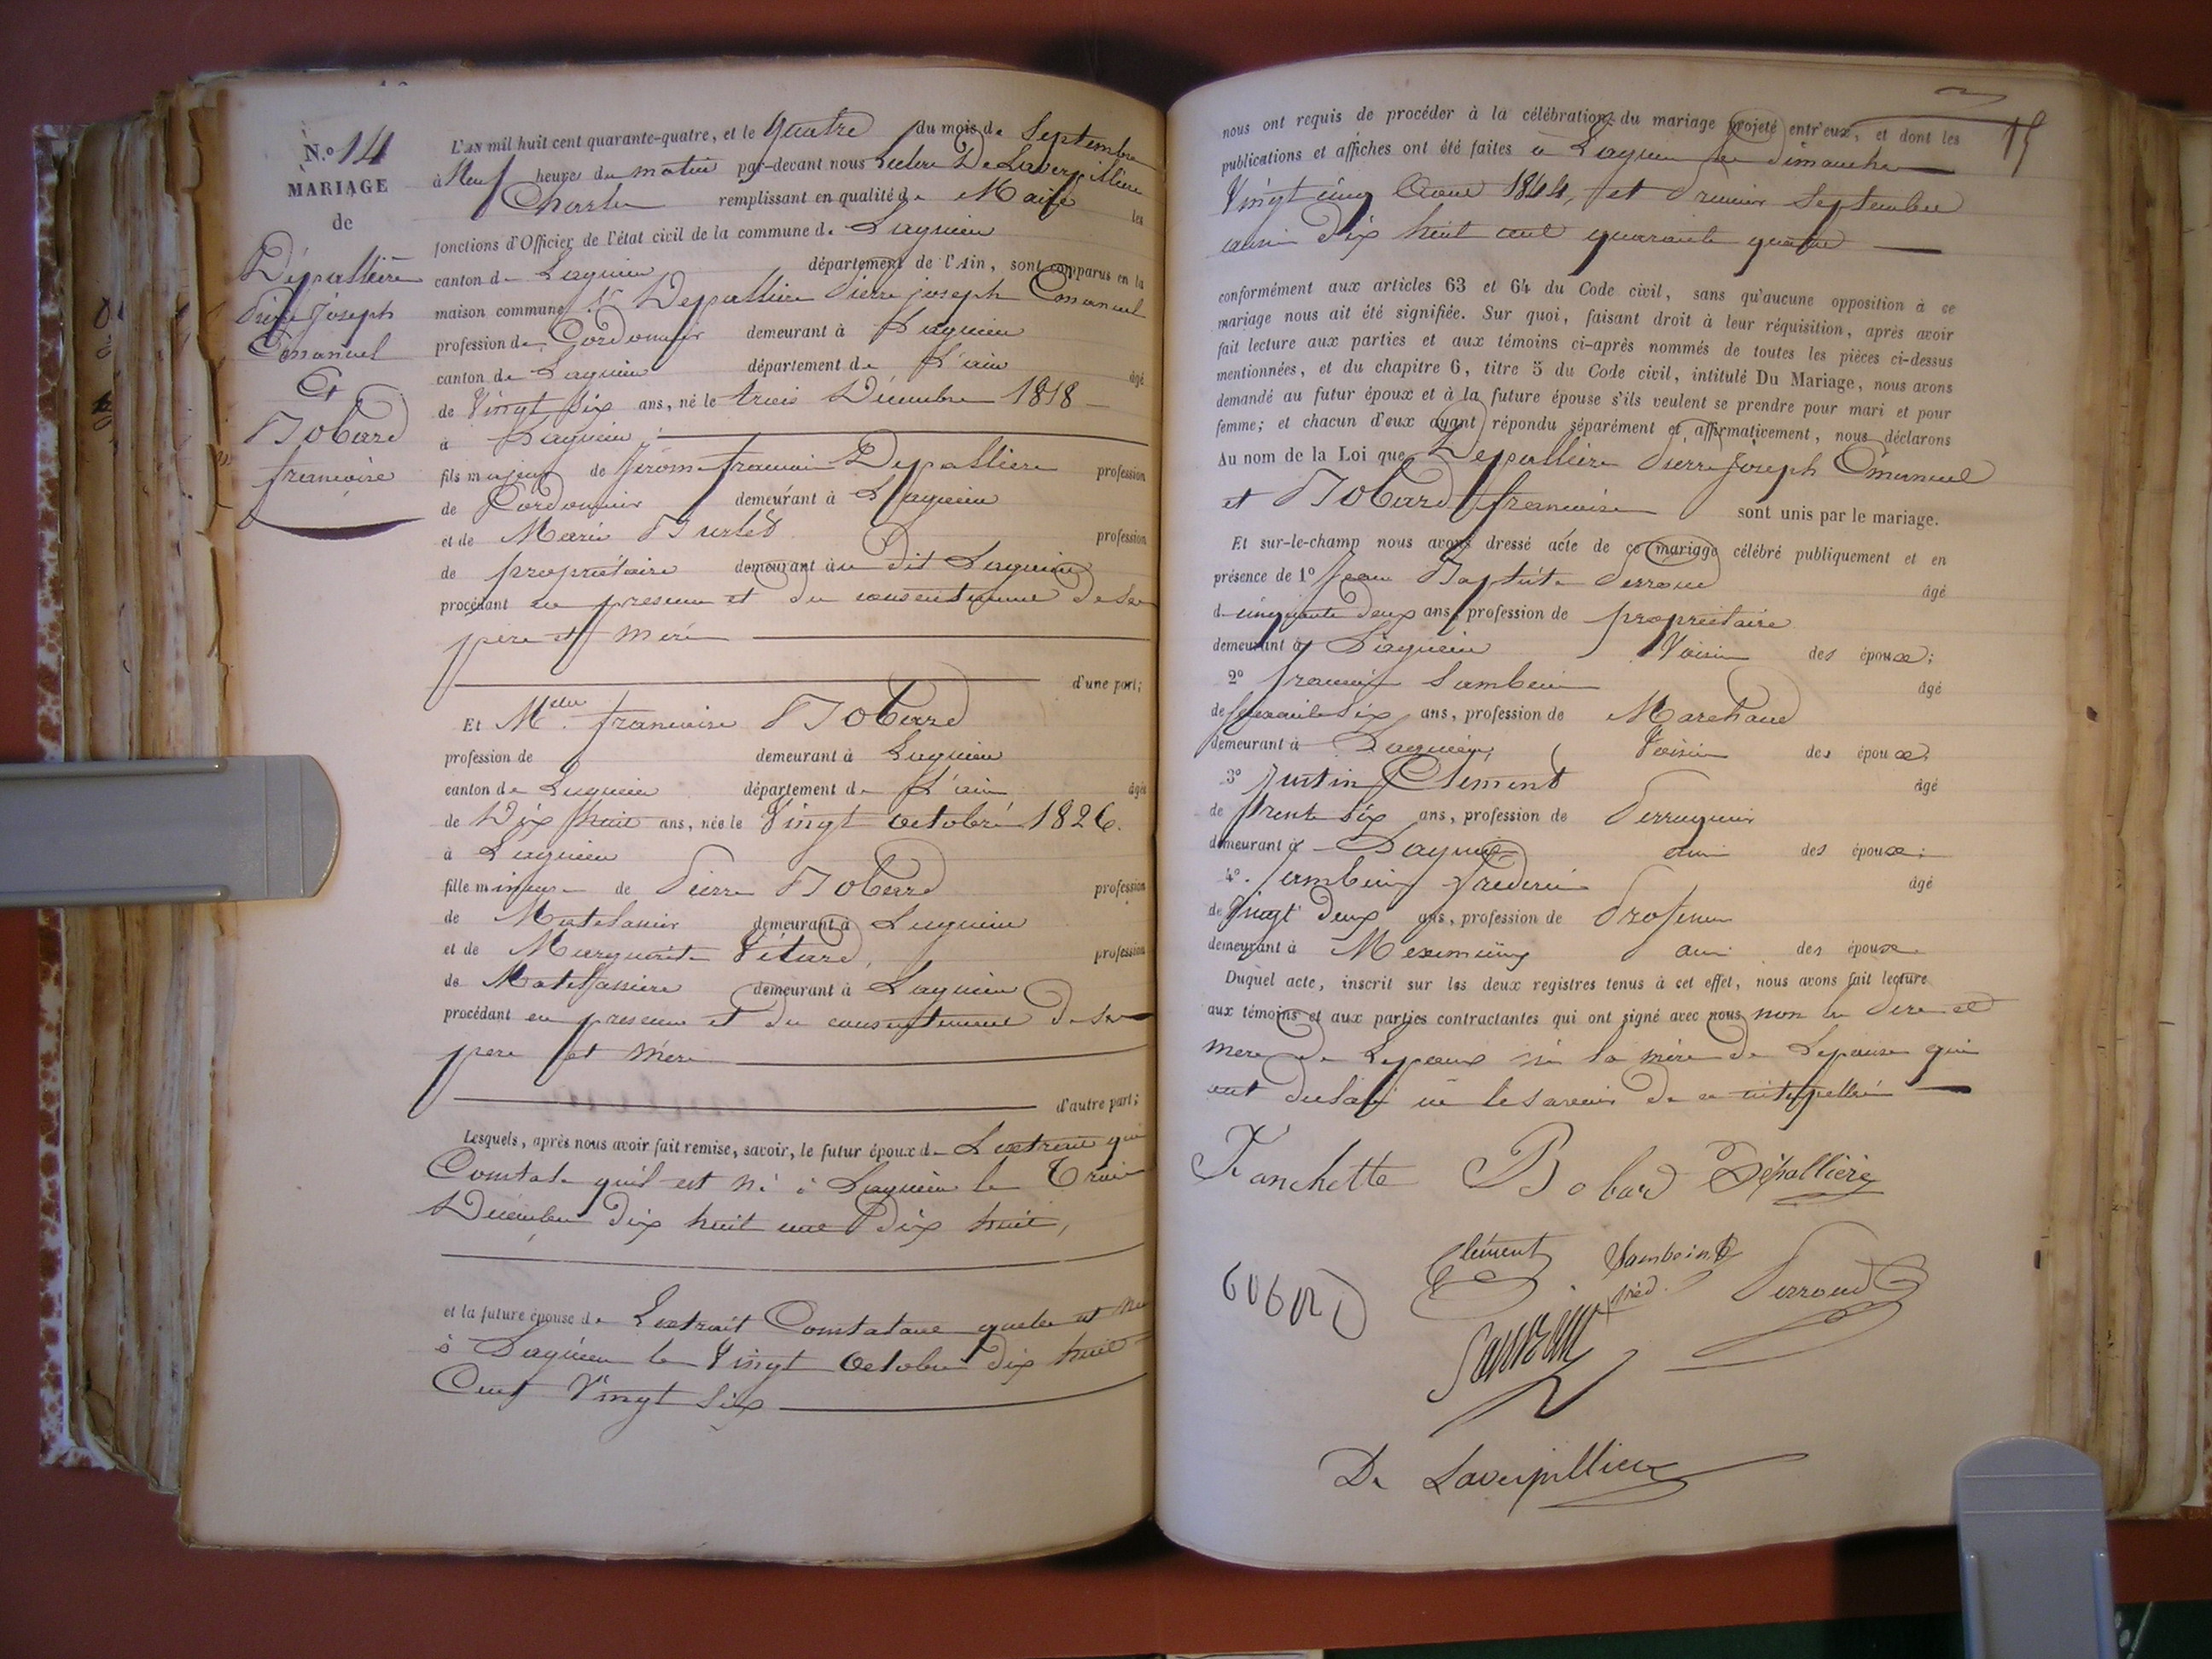 N.º 14
MARIAGE
de
Dépallière
Pierre Joseph
Emanuel
Et
Bobard
francoise
L'AN mil huit cent quarante-quatre, et le quatre du mois de Septembre
à Neuf heures du matin par-devant nous Leclerc De Laverpilliere
Charles remplissant en qualité de Maire les
fonctions d'Officier de l'état civil de la commune de Lagnieu
canton de Lagnieu département de l'Ain, sont comparus en la
maison commune Sr Depalliere Pierre joseph Emanuel
profession de Cordonnier demeurant à Lagnieu
canton de Lagnieu département de L'ain âgé
de Vingt Six ans, né le trois Décembre 1818
à Lagnieu
fils majeur de Jérome francois Depalliere profession
de Cordonnier demeurant à Lagnieu
et de Marie profession
de propriétaire demeurant au dit Lagnieu
procédant en presence et du consentement de ses
père et mère
d'une part;
Et Melle francoise Bobard
profession de demeurant à Lagnieu
canton de Lagnieu département de L'ain âgée
de Dix huit ans, née le Vingt octobre 1826.
à Lagnieu
fille mineure de Pierre Bobard profession
de Matelassier demeurant à Lagnieu
et de Marguerite Vétard, profession
de Matelassiere demeurant à Lagnieu
procédant en presence et du consentement de ses
pere et mère
d'autre part;
Lesquels, après nous avoir fait remise, savoir, le futur époux de L'extrait qui
Constate qu'il est né à Lagnieu le Trois
Décembre dix huit cent dix huit,
et la future épouse de L'extrait Constatant quelle est née
à Lagnieu le Vingt Octobre dix huit
Cent Vingt Six
15
nous ont requis de procéder à la célébration du mariage projeté entr'eux, et dont les
publications et affiches ont été faites à Lagnieu les dimanches
Vingt cinq Aout 1844, et Premier Septembre
aussi dix huit cent quarante quatre
conformément aux articles 63 et 64 du Code civil, sans qu'aucune opposition à ce
mariage nous ait été signifiée. Sur quoi, faisant droit à leur réquisition, après avoir
fait lecture aux parties et aux témoins ci-après nommés de toutes les pièces ci-dessus
mentionnées, et du chapitre 6, titre 5 du Code civil, intitulé Du Mariage, nous avons
demandé au futur époux et à la future épouse s'ils veulent se prendre pour mari et pour
femme; et chacun d'eux ayant répondu séparément et affirmativement, nous déclarons
Au nom de la Loi que Depalliere Pierre Joseph Emanuel
et Bobard francoise sont unis par le mariage.
Et sur-le-champ nous avons dressé acte de ce mariage célébré publiquement et en
présence de 1º Jean Baptiste Perroud âgé
de cinquante deux ans, profession de propriétaire
demeurant à Lagnieu Voisin des époux;
2º francois Sambein âgé
de Six ans, profession de Marchand
demeurant à Lagnieu Voisin des époux
3º Justin Clément âgé
de trente Six ans, profession de Perruquier
demeurant à Lagnieu ami des époux;
4º. Sambein Frédéric âgé
de Vingt deux ans, profession de Professeur
demeurant à Meximieux ami des époux
Duquel acte, inscrit sur les deux registres tenus à cet effet, nous avons fait lecture
aux témoins et aux parties contractantes qui ont signé avec nous non les Père et
mere de L'epoux ni la mère de L'epouse qui
ont ne le savoir de ce
Fanchette Bobard Dépallière
Clément Sambein
fréd. Perroud
Sambein
De Laverpilliere